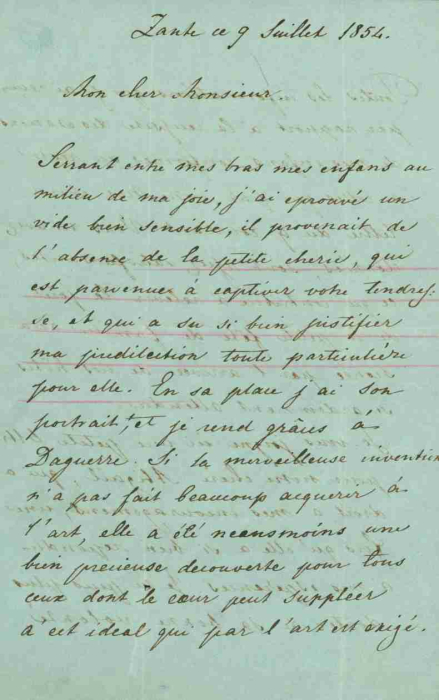 Zante ce 9 Juillet 1854.
Mon cher Monsieur.
Serrant entre mes bras mes enfans au
milieu de ma joie, j'ai eprouvé un
vide bien sensible, il provenait de
l'absence de la petite cherie, qui
est parvenue à captiver votre tendres-
se, et qui a su si bien justifier
ma prédilection toute particulière
pour elle. En sa place j'ai son
portrait, et je rend grâces à
Daguerre. Si la merveilleuse invention
n'a pas fait beaucoup acquerir à
l'art, elle a été neansmoins une
bien precieuse decouverte pour tous
ceux dont le cœur peut suppléer
a cet ideal qui par l'art est exigé.